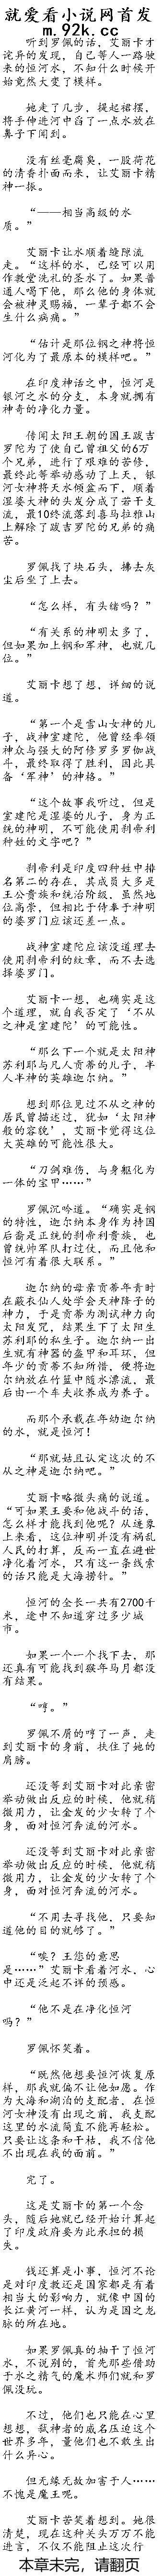 就爱看小说网首发
m.92k.cc
听到罗佩的话，艾丽卡才
诧异的发现，自己等人一路驶
来的恒河水，不知什么时候开
始竟然大变了模样。
她走了几步，提起裙摆，
将手伸进河中舀了一点水放在
鼻子下闻到。
没有丝毫腐臭，一股荷花
的清香扑面而来，让艾丽卡精
神一振。
“——相当高级的水
质。”
艾丽卡让水顺着缝隙流
走。“这样的水，已经可以用
作教堂洗礼的圣水了。如果普
通人喝下他，那么他的身体就
会被神灵赐福，一辈子都不会
生什么病痛。”
“估计是那位钢之神将恒
河化为了最原本的模样吧。”
在印度神话之中，恒河是
银河之水的分支，本身就拥有
神奇的净化力量。
传闻太阳王朝的国王跋吉
罗陀为了使自己曾祖父的6万
个兄弟，进行了艰难的苦修，
最终此等举动感动了上天，银
河女神将天水倾盆而下，顺着
湿婆大神的头发分成了若干支
流，最10终流落到喜马拉雅山
上解除了跋吉罗陀的兄弟的痛
苦。
罗佩找了块石头，拂去灰
尘后坐了上去。
“怎么样，有头绪吗？”
“有关系的神明太多了，
但如果加上钢和军神，也就几
位。”
艾丽卡想了想，详细的说
道。
“第一个是雪山女神的儿
子，战神室建陀，他曾经率领
神众与强大的阿修罗多罗伽战
斗，最终取得了胜利，因此具
备‘军神’的神格。”
“这个故事我听过，但是
室建陀是湿婆的儿子，身为正
统的神明，不可能使用刹帝利
种姓的文字吧？”
刹帝利是印度四种姓中排
名第二的存在，其成员大多是
王公贵族和统治阶级，虽然地
位高贵，但相比于侍奉于神明
的婆罗门应该还差一点。
战神室建陀应该没道理去
使用刹帝利的纹章，而不去选
择婆罗门。
艾丽卡一想，也确实是这
个道理，就自我否定了‘不从
之神是室建陀’的可能性。
“那么下一个就是太阳神
苏利耶与凡人贡蒂的儿子，半
人半神的英雄迦尔纳。”
想到那位见过不从之神的
居民曾描述过，犹如‘太阳神
般的容貌’，艾丽卡觉得这位
大英雄的可能性很大。
“刀剑难伤，与身躯化为
一体的宝甲……”
罗佩沉吟道。“确实是钢
的特性，迦尔纳本身作为持国
后裔是正统的刹帝利贵族，也
曾统帅军队打过仗，而且他和
恒河有着很大联系。”
迦尔纳的母亲贡蒂年青时
在敝衣仙人处学会天神降子的
神力，于是贡蒂为测试神力向
太阳发咒，结果生下了太阳生
苏利耶的私生子。迦尔纳一出
生就有神器的盔甲和耳环，但
年少的贡蒂不知所措，便将迦
尔纳放在竹篮中随水漂流，最
后由一个车夫收养成为养子。
而那个承载在年幼迦尔纳
的水，就是恒河！
“那就姑且认定这次的不
从之神是迦尔纳吧。”
艾丽卡略微头痛的说道。
“可如果王要和他战斗的话，
怎么样才能找到他呢？从迹象
上来看，这位神明并没有祸乱
人民的打算，反而一直在避世
净化着河水，只有这一条线索
的话只能是大海捞针。”
恒河的全长一共有2700千
米，途中不知道穿过多少城
市。
如果一个一个找下去，那
还真有可能找到猴年马月都没
有结果。
“哼。”
罗佩不屑的哼了一声，走
到艾丽卡的身前，扶住了她的
肩膀。
还没等到艾丽卡对此亲密
举动做出反应的时候，他就稍
微用力，让金发的少女转了个
身，面对恒河奔流的河水。
还没等到艾丽卡对此亲密
举动做出反应的时候，他就稍
微用力，让金发的少女转了个
身，面对恒河奔流的河水。
“不用去寻找他，只要知
道他的目的就够了。”
“唉？王您的意思
是……”艾丽卡看着河水，心
中还是泛起不详的预感。
“他不是在净化恒河
吗？”
罗佩怀笑着。
“既然他想要恒河恢复原
样，那我就偏不让他如愿。作
为大海和湖泊的支配者，在恒
河女神没有出现之前，我支配
这里的水流简直不能再轻松。
只要让这条和干枯，我不信他
不出现在我的面前。”
完了。
这是艾丽卡的第一个念
头，随后她就已经开始计算起
了印度政府要为此承担的损
失。
钱还算是小事，恒河不论
是对印度教还是国家都是有着
相当大的影响力，就像中国的
长江黄河一样，认为是国之龙
脉的所在地。
如果罗佩真的抽干了恒河
水，不说别的，首先那些借助
于水之精气的魔术师们就和罗
佩没玩。
不过，他们也只能在心里
想想，弑神者的威名压迫这个
世界多年，量他们也不敢生出
什么异心。
但无缘无故加害于人……
不愧是魔王呢。
艾丽卡苦笑着想到。她很
清楚，现在这种关头万万不能
进言，不仅不能阻止这次行
本章未完，请翻页